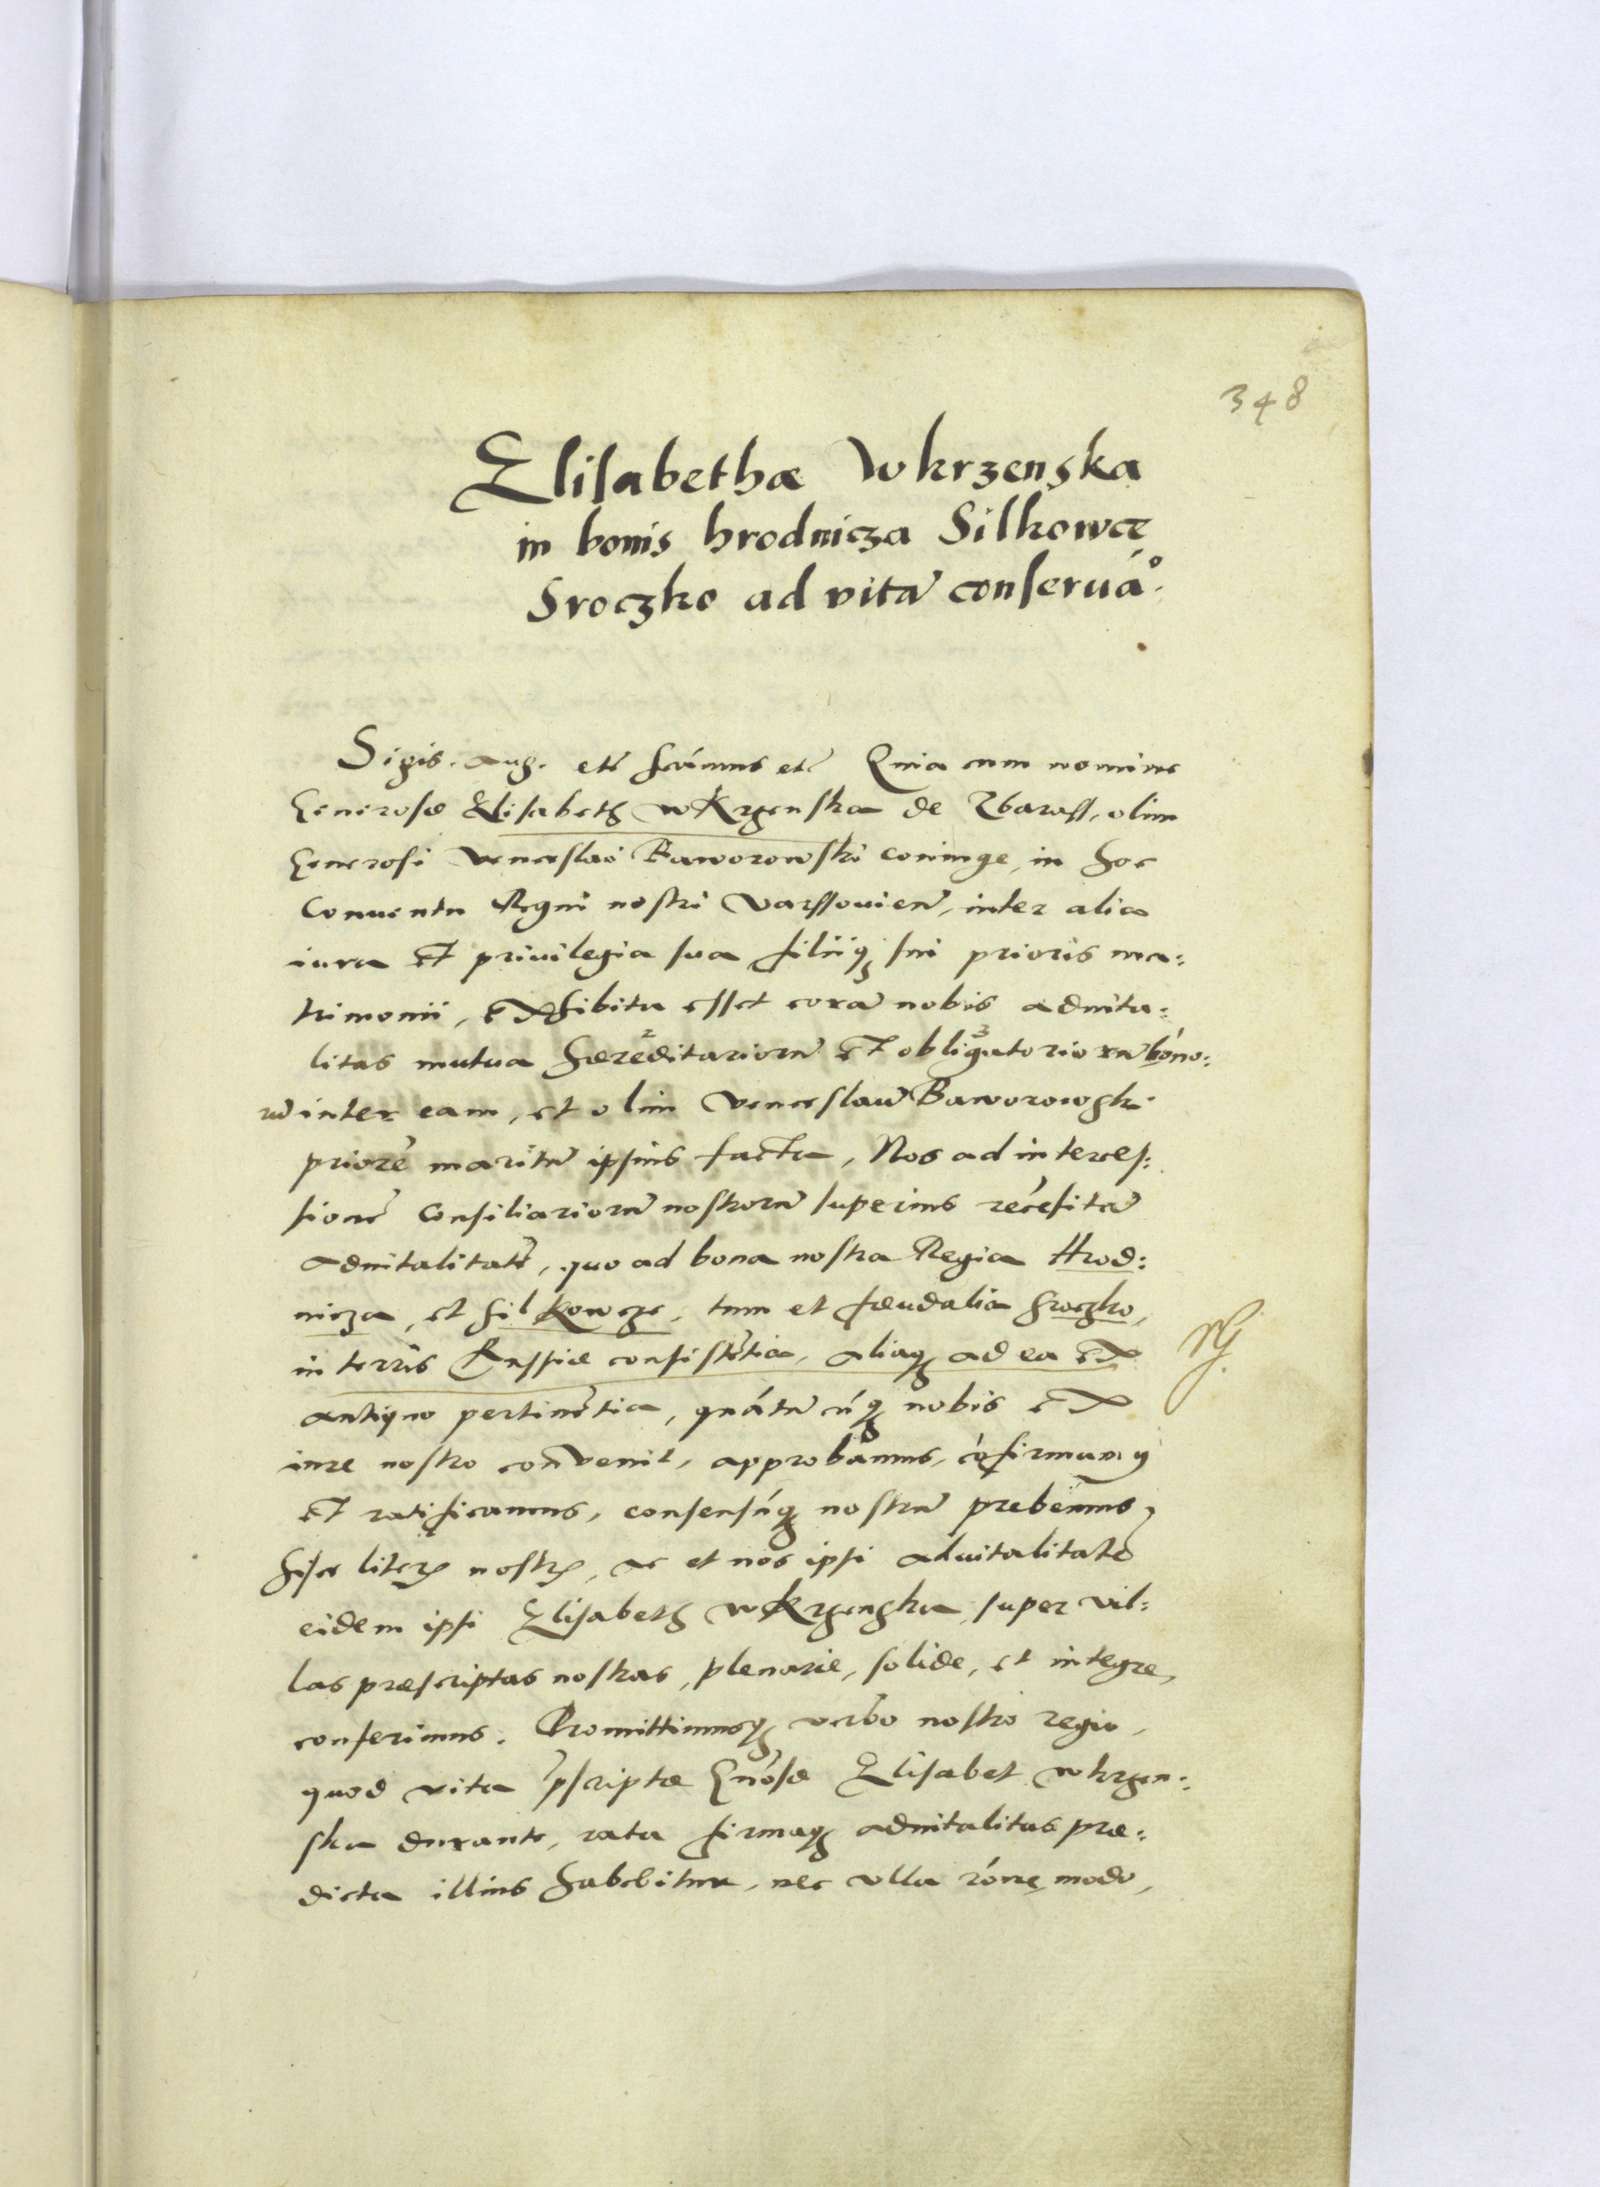 348
Elisabethæ Wkrzenska
in bonis hrodnicza Silkowcę
Sroczko ad vitā conseruáo.
Sigis. Aug. etc̄ fcimus etc̄ Quia cum nomine
Generosæ Elisabeth wkrzenska de Zbarass, olim
Generosi Venceslai Baworowski coniuge, in hoc
Conuentu Regni nostri Varssouien̄, inter alia
iura et priuilegia sua filiiq3 sui prioris ma:
trimonii, exhibita esset corā nobis aduita:
litas mutua hæreditariorū et obligatoriorū bono:
rū inter eam, et olim Venceslaū Baworowsk
priorē maritū ipsius facta, Nos ad interces:
sionē Consiliariorū nostrorū superius recēsitā
aduitalitatē, quo ad bona nostra Regia Hrod:
nicza, et silkowcze, tum et fæudalia sroczko,
in terris Russiæ consistētia, aliaq3 ad ea ex
antiquo pertinētia, quātū cūq3 nobis ex
iure nostro conuenit, approbāmus, cōfirmamq
et ratificamus, consensūq3 nostrū prebēmus,
hisce literis nostris, ac et nos ipsi aduitalitatē
eidem ipsi Elisabeth wkrzenska super vil:
las præscriptas nostras, plenarie, solide, et integre,
conferimus. Promittimusq3 verbo nostro regio,
quod vita p̄scriptæ Gn̄osæ Elisabet wkrzen:
ska durante, rata firmaq3 aduitalitas præ:
dicta illius habebitur, nec vlla rōne, modo,